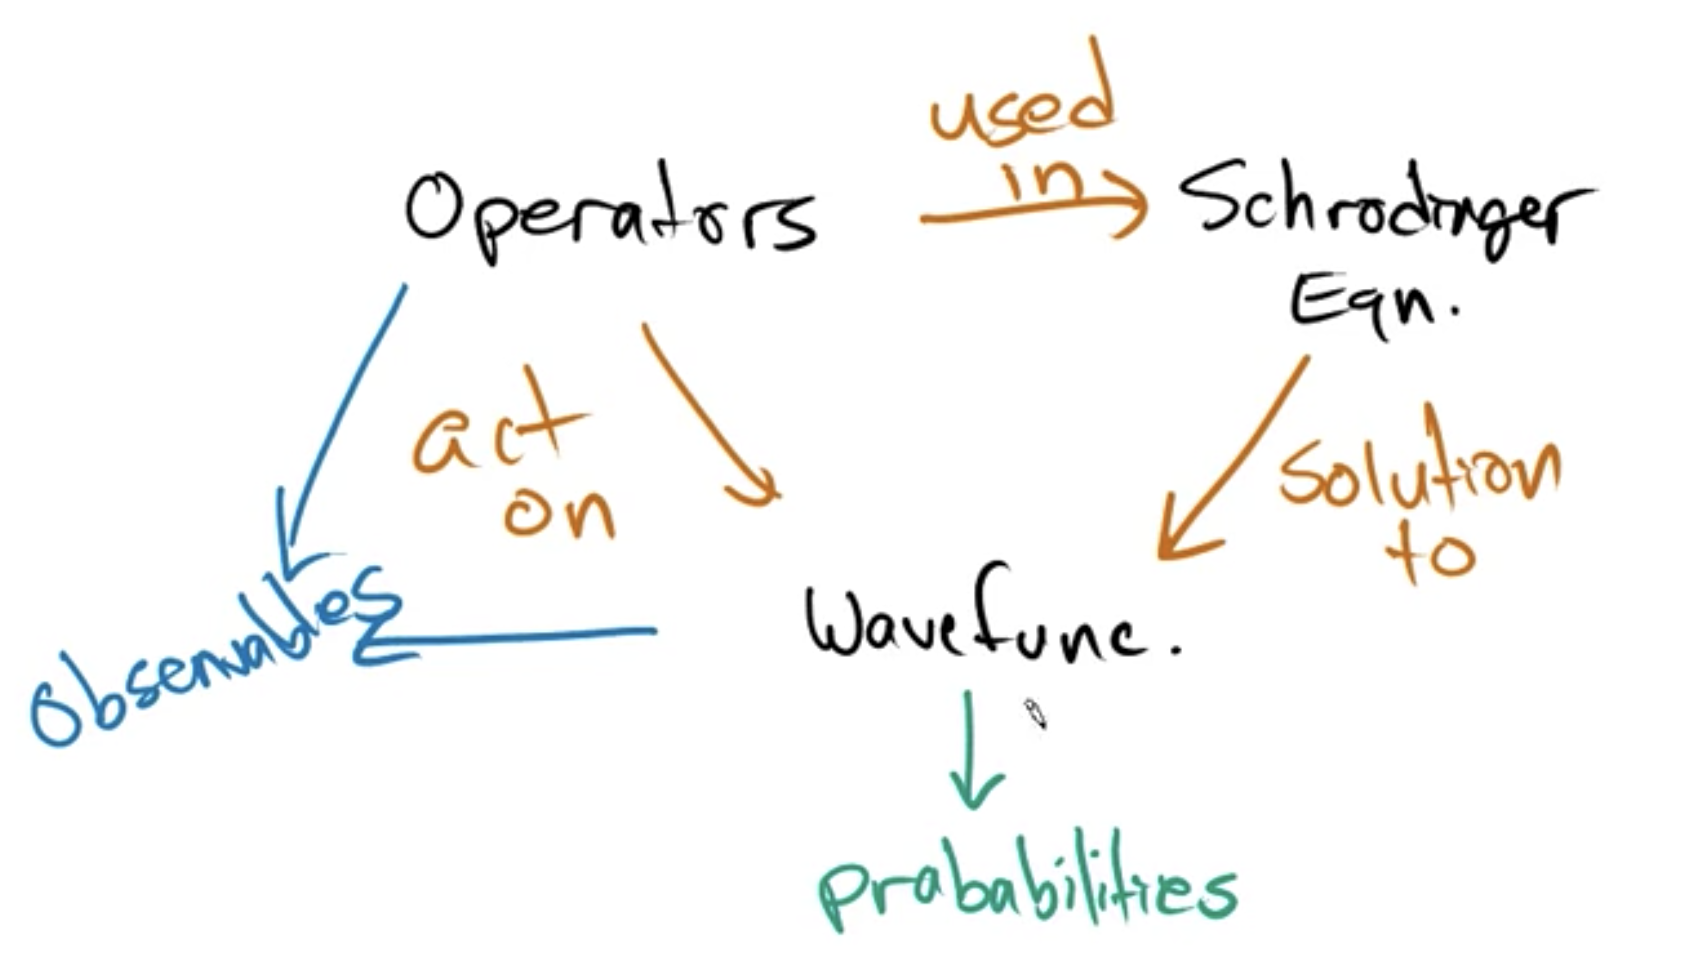 used
in
Operators
Schrodinger
Eqn.
act
on
solution
to
Observables
Wavefunc.
prababilities